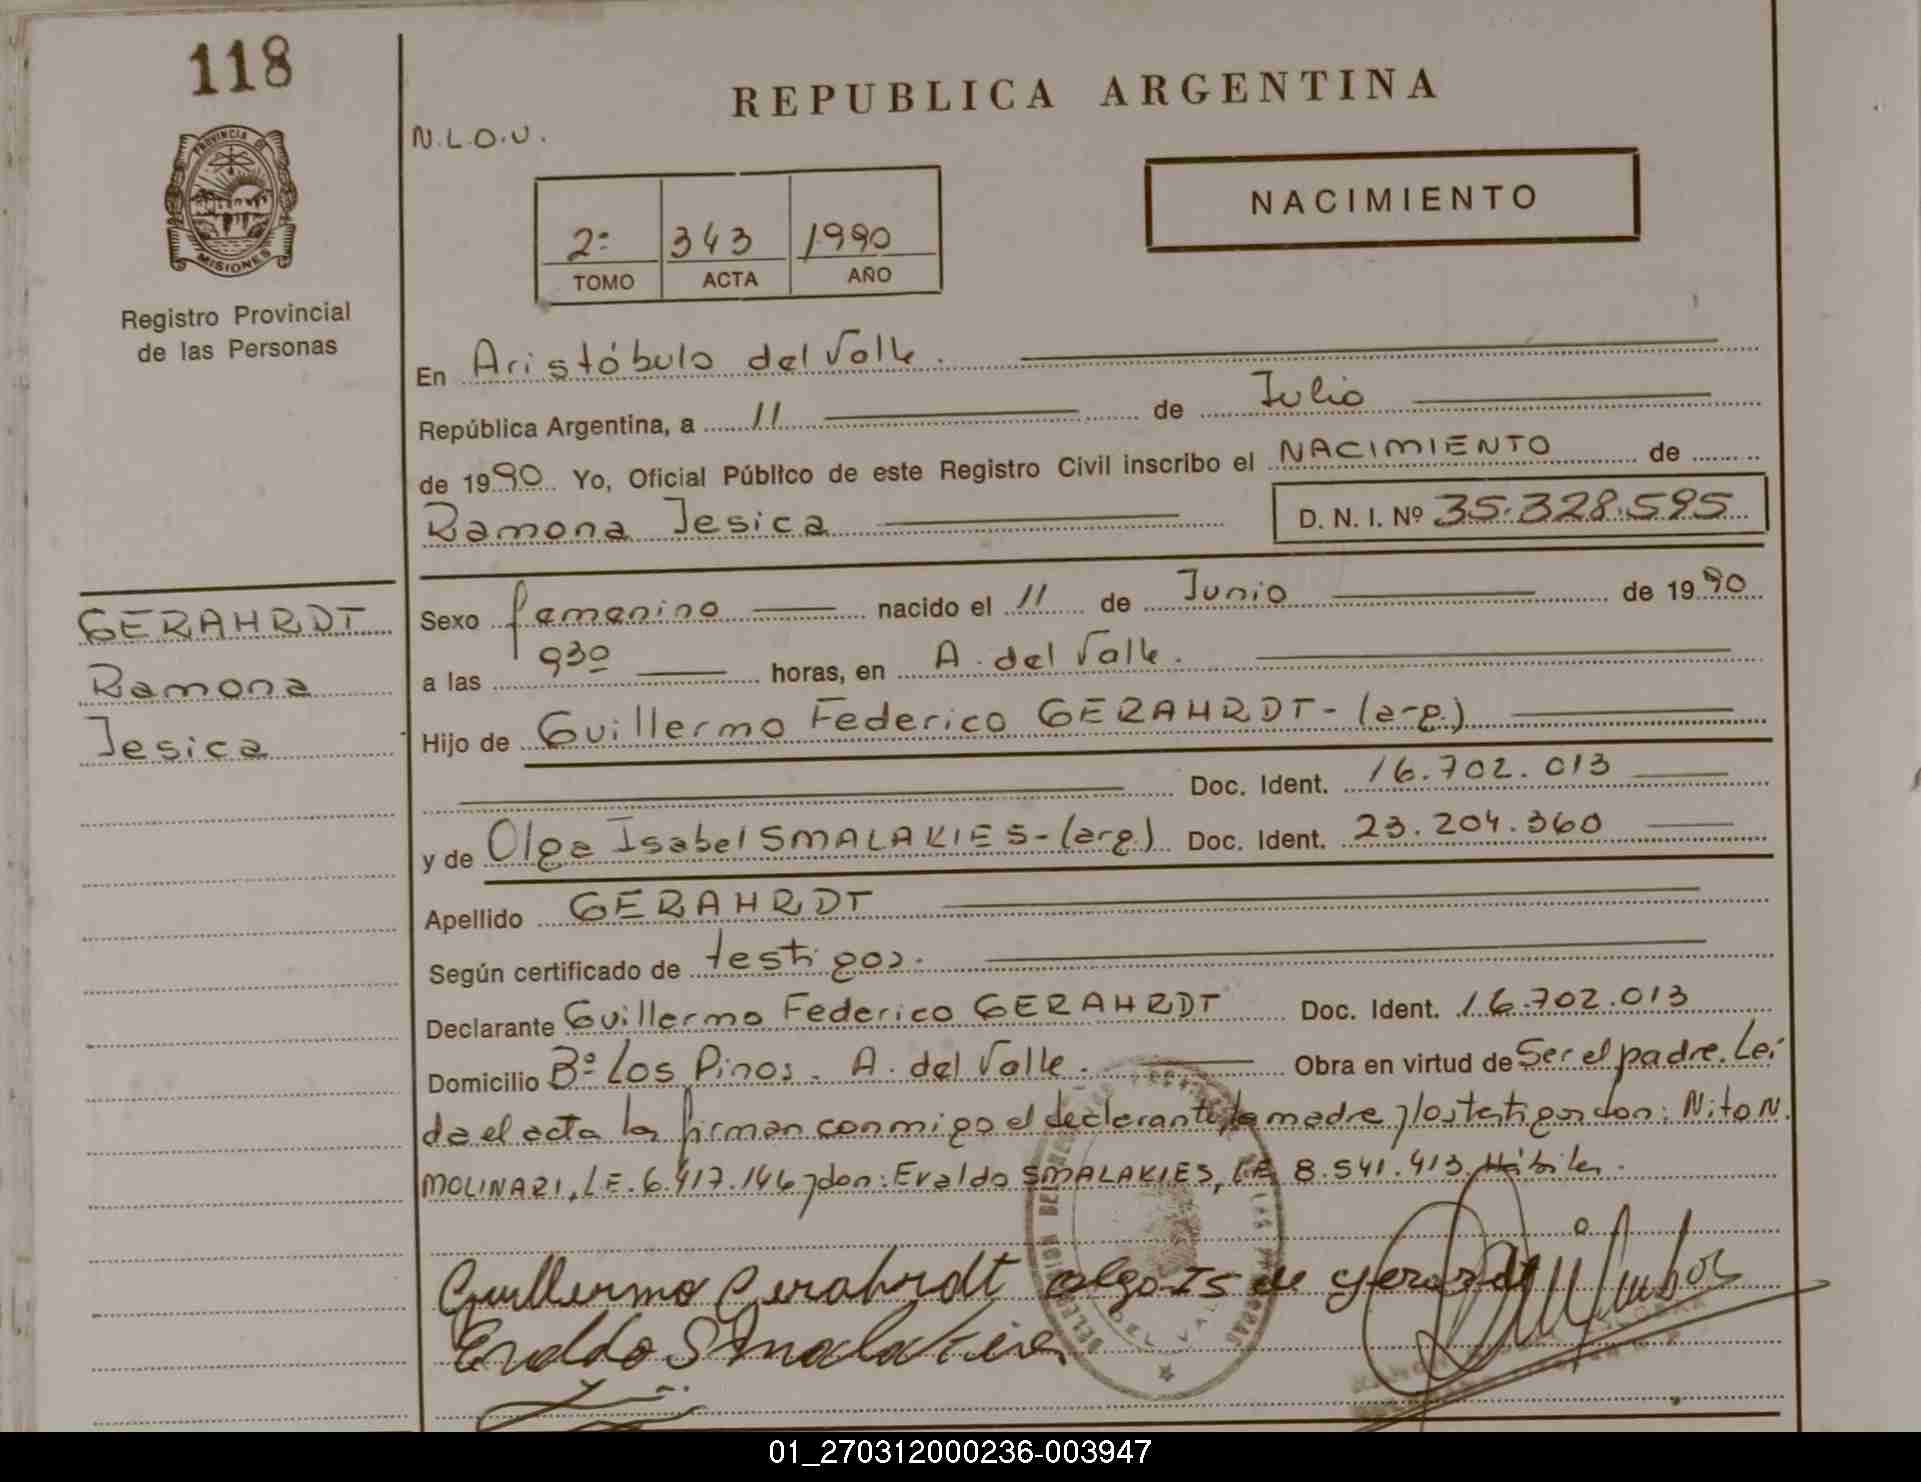 118
PROVINCIA D
MISIONES
Registro Provincial
de las Personas
GERAHRDT
Ramona
Jesica
REPUBLICA ARGENTINA
N.L.O.U.
NACIMIENTO
2º 343 1990
TOMO ACTA AÑO
En Aristóbulo del Valle.
República Argentina, a 11 de Julio
de 1990 Yo, Oficial Público de este Registro Civil inscribo el NACIMIENTO de
Ramona Jesica D. N. I. Nº 35.328.595
Sexo femenino nacido el 11 de Junio de 1990
a las 930 horas, en A. del Valle.
Hijo de Guillermo Federico GERAHRDT- (arg.)
Doc. Ident. 16.702.013
y de Olga Isabel SMALAKIES- (arg.) Doc. Ident. 23.204.360
Apellido GERAHRDT
Según certificado de testigos.
Declarante Guillermo Federico GERAHRDT Doc. Ident. 16.702.013
Domicilio Bº Los Pinos. A. del Valle. Obra en virtud de Ser el padre. Leí
da el acta la firman conmigo el declarante, la madre y los testigos don: Nito N.
MOLINARI, L.E. 6.417.146 y don: Eraldo SMALAKIES, L.E. 8.541.413. Hábiles.
Guillermo Gerahrdt Olga Is de Gerardt
Eraldo Smalakies
01_270312000236-003947